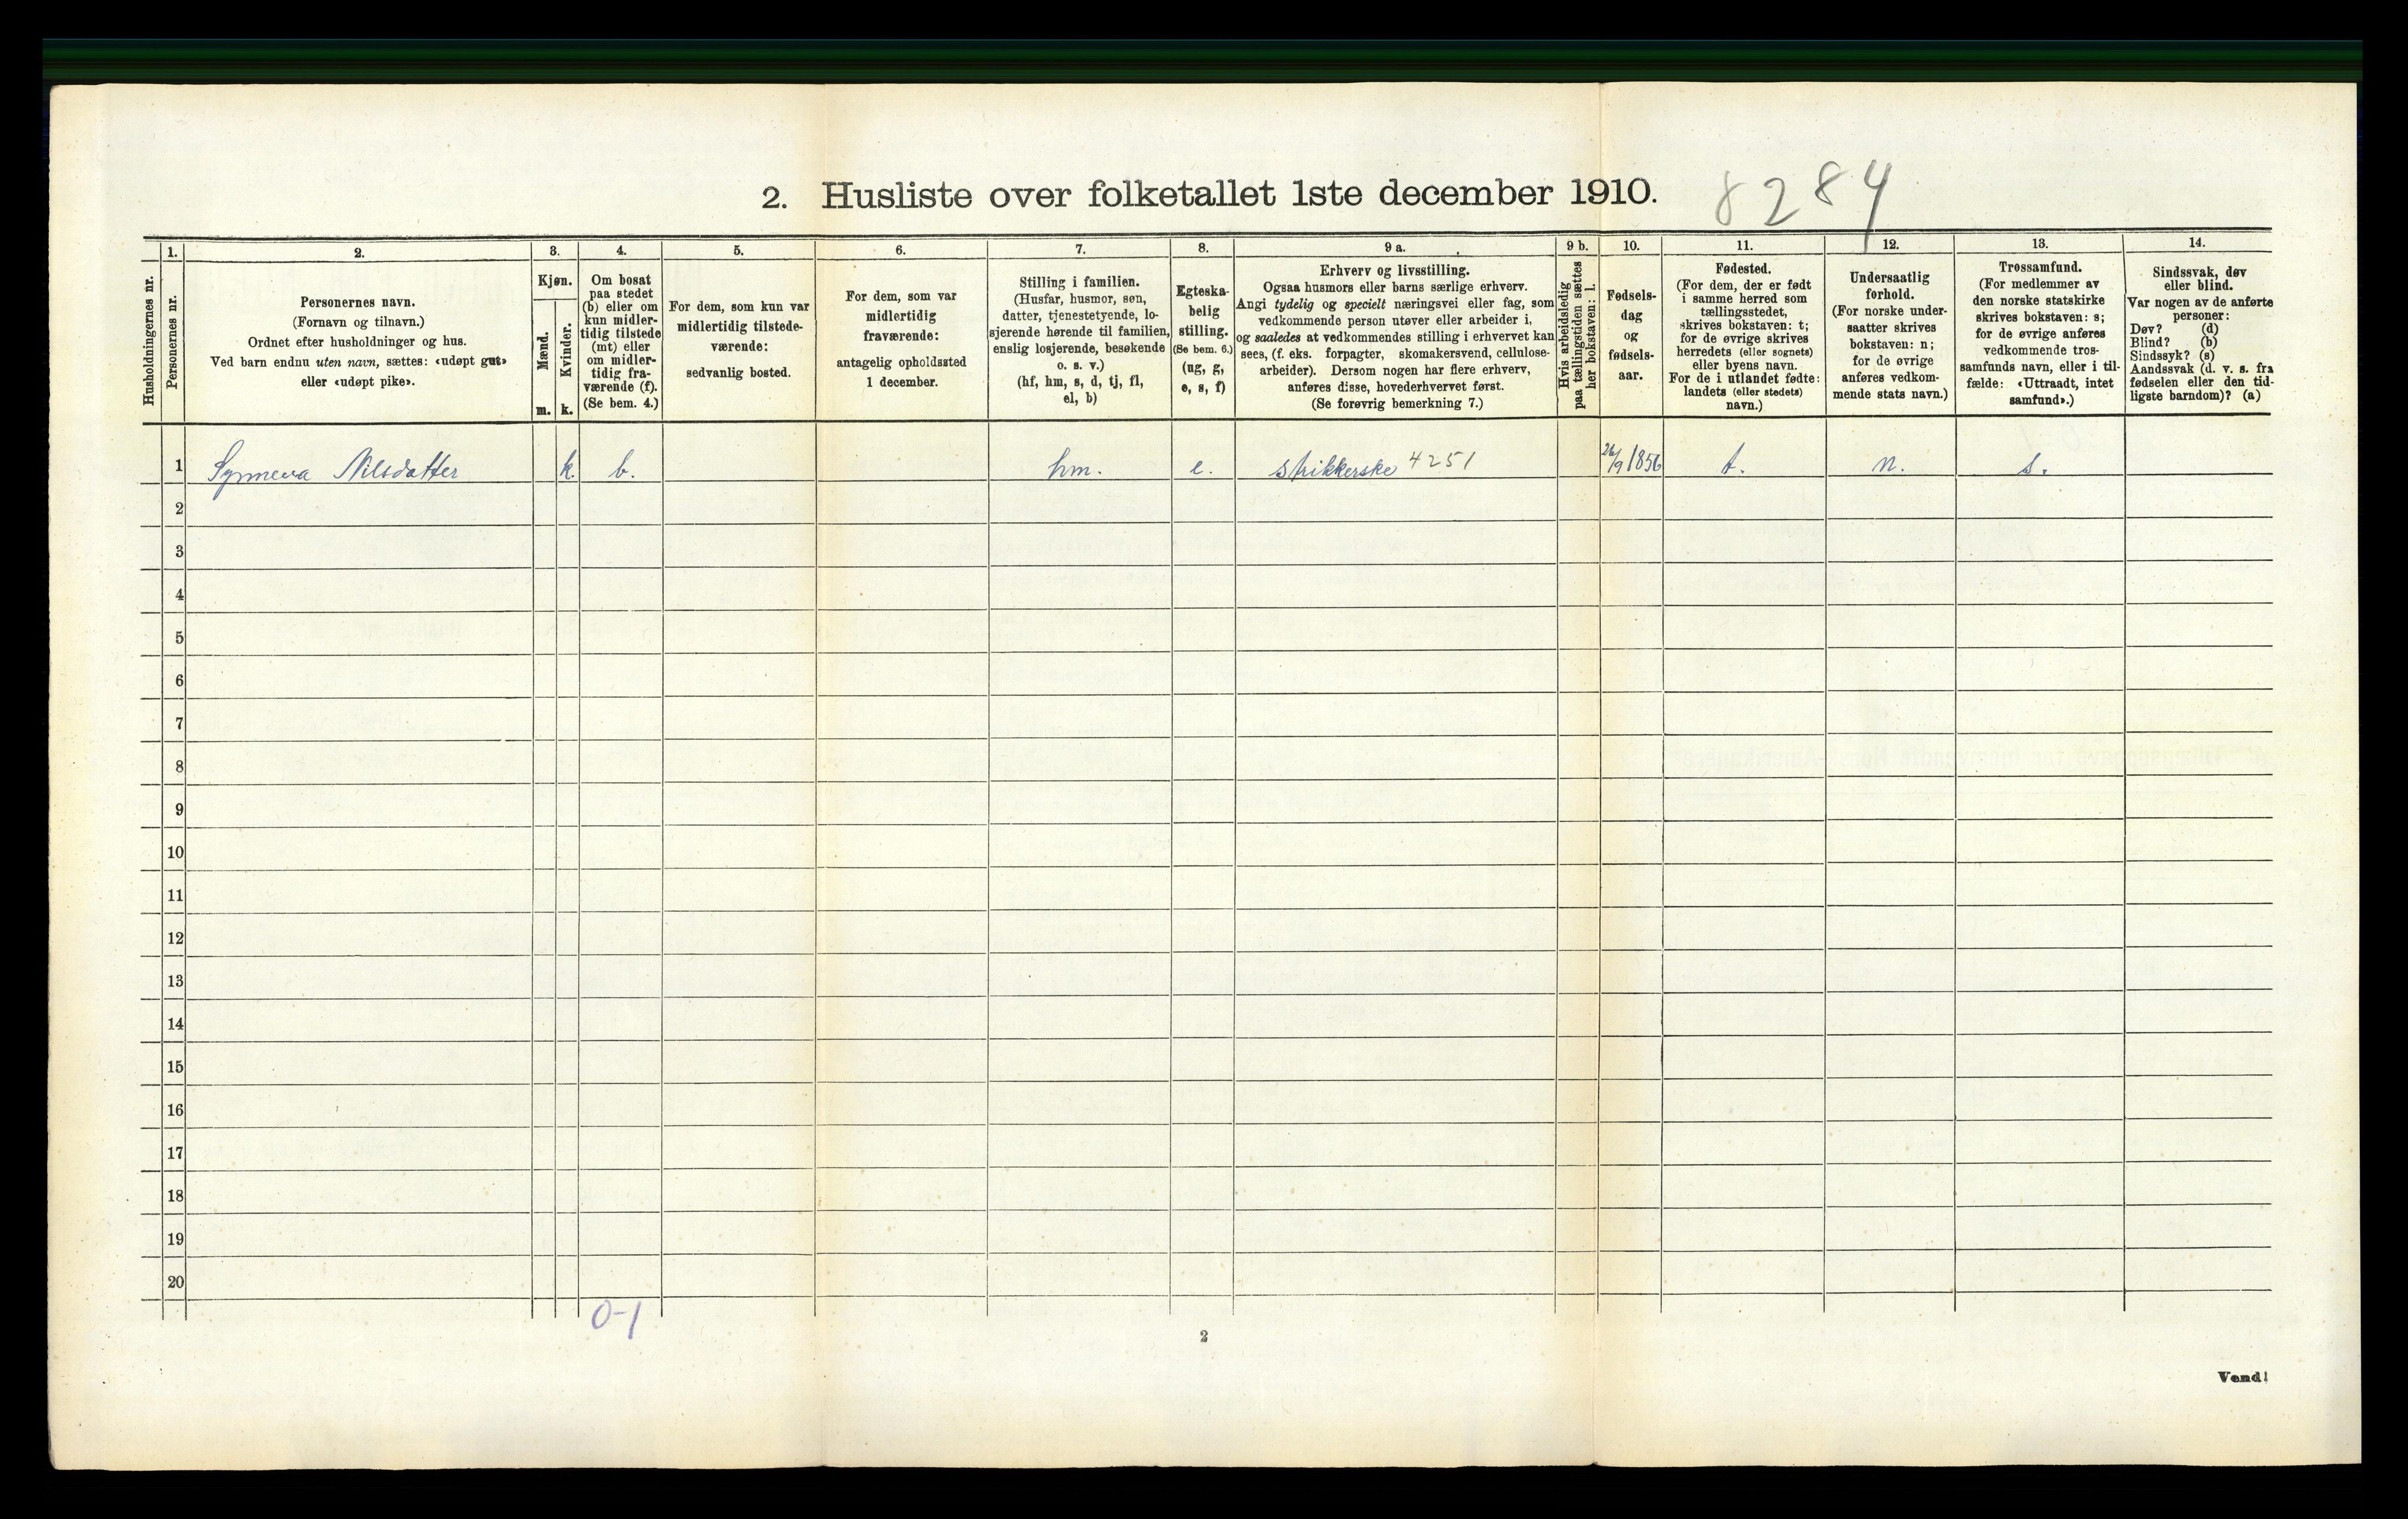 2. Husliste over folketallet 1ste december 1910. 8284
Husholdningernes nr.
1.
Personernes nr.
2.
Personernes navn.
(Fornavn og tilnavn.)
Ordnet efter husholdninger og hus.
Ved barn endnu uten navn, sættes: «udøpt gut»
eller «udøpt pike».
3.
Kjøn.
Mænd.
m.
Kvinder.
k.
4.
Om bosat
paa stedet
(b) eller om
kun midler-
tidig tilstede
(mt) eller
om midler-
tidig fra-
værende (f).
(Se bem. 4.)
5.
For dem, som kun var
midlertidig tilstede-
værende:
sedvanlig bosted.
6.
For dem, som var
midlertidig
fraværende:
antagelig opholdssted
1 december.
7.
Stilling i familien.
(Husfar, husmor, søn,
datter, tjenestetyende, lo-
sjerende hørende til familien,
enslig losjerende, besøkende
o. s. v.)
(hf, hm, s, d, tj, fl,
el, b)
8.
Egteska-
belig
stilling.
(Se bem. 6.)
(ug, g,
e, s, f)
9 a.
Erhverv og livsstilling.
Ogsaa husmors eller barns særlige erhverv.
Angi tydelig og specielt næringsvei eller fag, som
vedkommende person utøver eller arbeider i,
og saaledes at vedkommendes stilling i erhvervet kan
sees, (f. eks. forpagter, skomakersvend, cellulose-
arbeider). Dersom nogen har flere erhverv,
anføres disse, hovederhvervet først.
(Se forøvrig bemerkning 7.)
9 b.
Hvis arbeidsledig
paa tællingstiden sættes
her bokstaven: l.
10.
Fødsels-
dag
og
fødsels-
aar.
11.
Fødested.
(For dem, der er født
i samme herred som
tællingsstedet,
skrives bokstaven: t;
for de øvrige skrives
herredets (eller sognets)
eller byens navn.
For de i utlandet fødte:
landets (eller stedets)
navn.)
12.
Undersaatlig
forhold.
(For norske under-
saatter skrives
bokstaven: n;
for de øvrige
anføres vedkom-
mende stats navn.)
13.
Trossamfund.
(For medlemmer av
den norske statskirke
skrives bokstaven: s;
for de øvrige anføres
vedkommende tros-
samfunds navn, eller i til-
fælde: «Uttraadt, intet
samfund».)
14.
Sindssvak, døv
eller blind.
Var nogen av de anførte
personer:
Døv? (d)
Blind? (b)
Sindssyk? (s)
Aandssvak (d. v. s. fra
fødselen eller den tid-
ligste barndom)? (a)
1 Synneva Nilsdatter k. b. hm. e. strikkerske 4251 26/9 1856 t. n. s.
2
3
4
5
6
7
8
9
10
11
12
13
14
15
16
17
18
19
20
0-1
2
Vend!